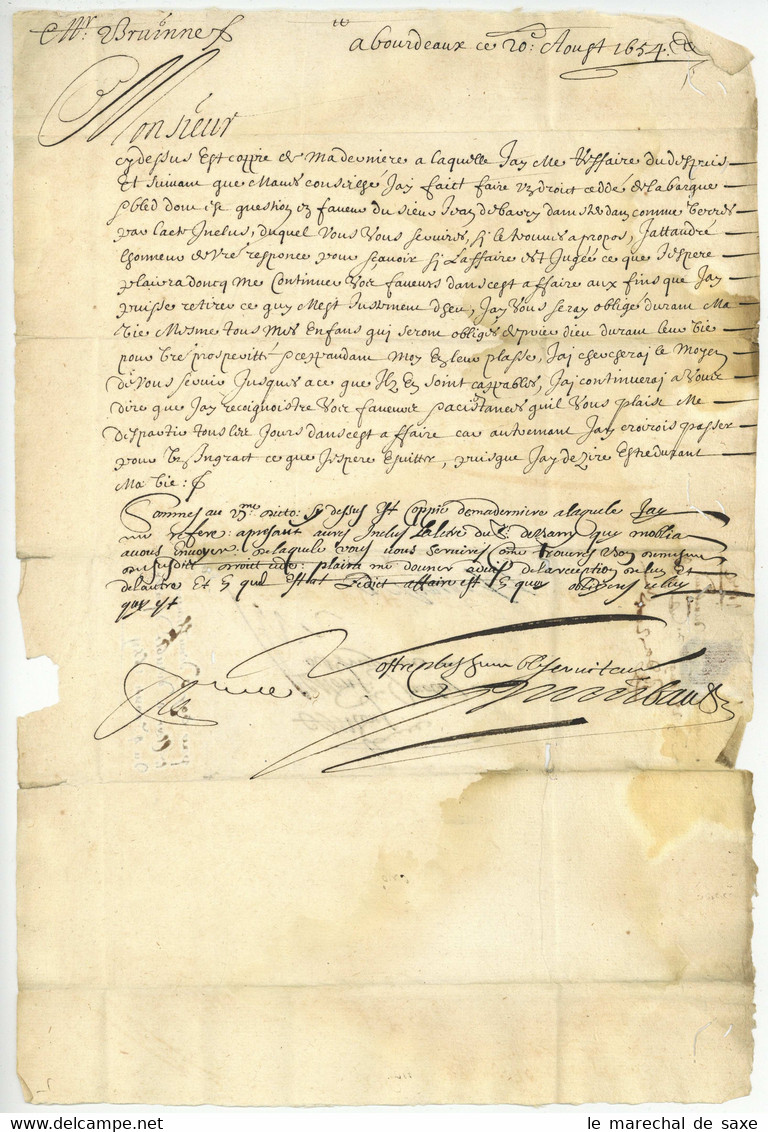 Mr. Bruinne
a bourdeaux ce 20: Aoust 1654
Monsieur
cy dessus Est coppie de ma derniere a laquelle Jay Me
Et suivant que Maves conseilhé Jay faict faire un droict cedde de la barque
bled dont est question en faveur du sieur Jean de
par lacte Inclus, duquel Vous Vous servires, sy le trouves a propos, Jattandré
lhonneur de vre responce pour sçavoir sy Laffaire est Jugée ce que Jespere
plaira doncq me Continuer Vos faveurs dans cest affaire aux fins que Jay
puisse retirer ce quy Mest Justement dheu, Jay Vous seray obligé durant Ma
vie Mesme tous mes Enfans qui seront obligés de prier dieu durant leur vie
pour vre prosperitté & cepandant Moy En leur plasse, Jaj chercheraj le Moyen
de Vous servir Jusques a ce que Ilz En soint cappables, Jaj continueraj a Vous
dire que Jay recoignoistre Vos faveurs & acistances quil Vous plaist Me
despartir tous les Jours dans cest affaire car autremant Jay croirois passer
pour Un Ingrat ce que Jespere Esvitter, puisque Jay dezire Estre durant
Ma vie:
dicto: cy dessus Est Coppie de ma derniere a laquele Jay
me refere: apresant aures Inclus la letre du Sr. quy moblia
a vous envoyer de laquele vous vous servires trouveres bon
plaira me donner de la reception de lun Et
de lautre Et En quel Estat Ledict affaire est En quoy obligeres celuy
quy est
Vostre plus humble serviteur
le marechal de saxe